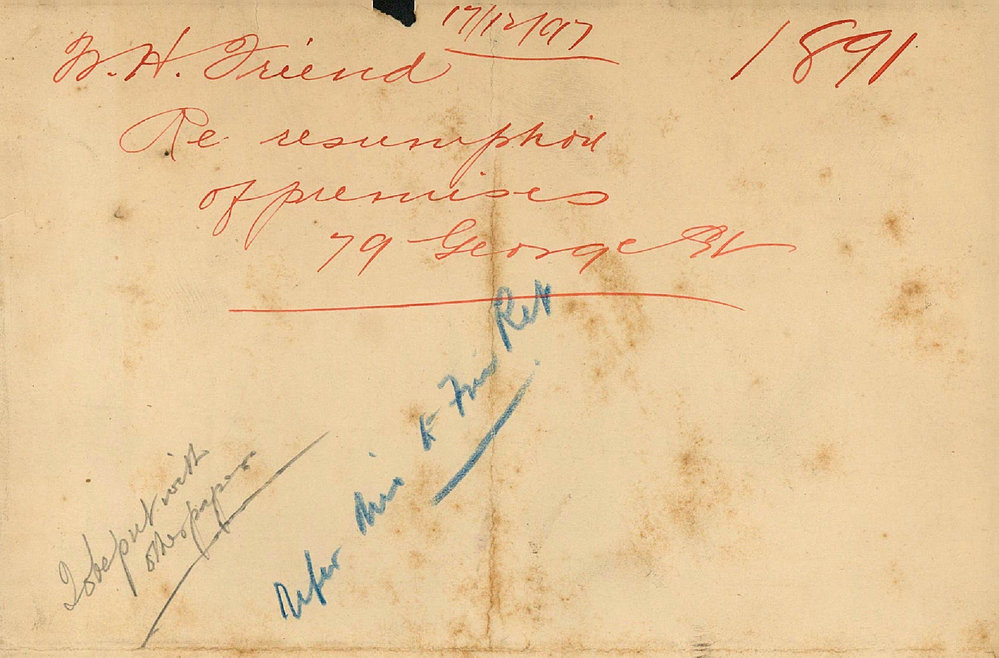 17/12/97
W. H. Friend
1891
Re resumption
of premises
79 George St
Refer this to
To be put with
other papers